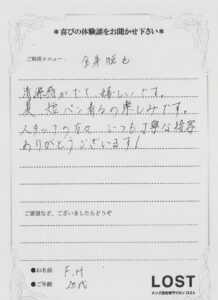 ＊喜びの体験談をお聞かせ下さい＊
ご利用メニュー： 全身脱毛
清潔感がでて、嬉しいです。
夏、短パン着るの楽しみです。
スタッフの方々、いつも丁寧な接客
ありがとうございます！
ご要望など、ございましたらどうぞ
●お名前 F.H
●ご年齢 20代
LOST
メンズ脱毛専門サロン ロスト